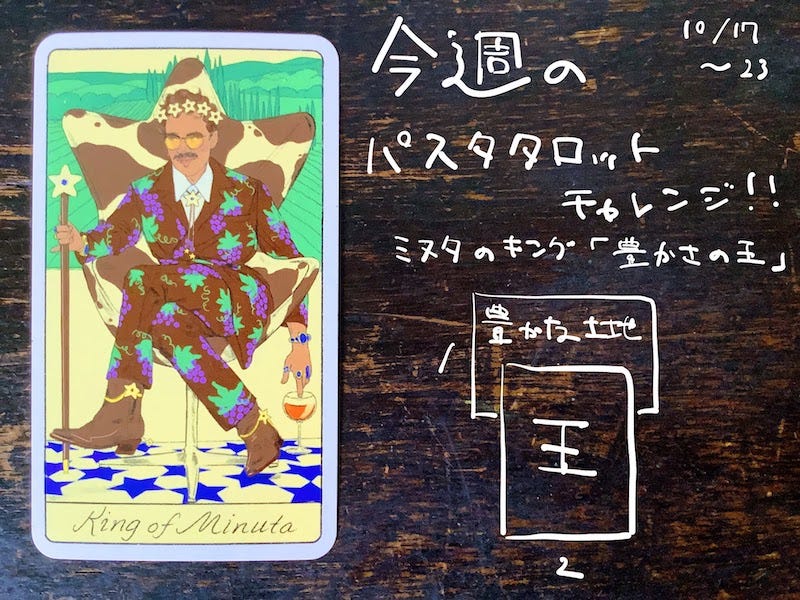 今週の
10/17
〜23
パスタタロット
チャレンジ!!
ミヌタのキング「豊かさの王」
豊かな土地
1
王
2
King of Minuta